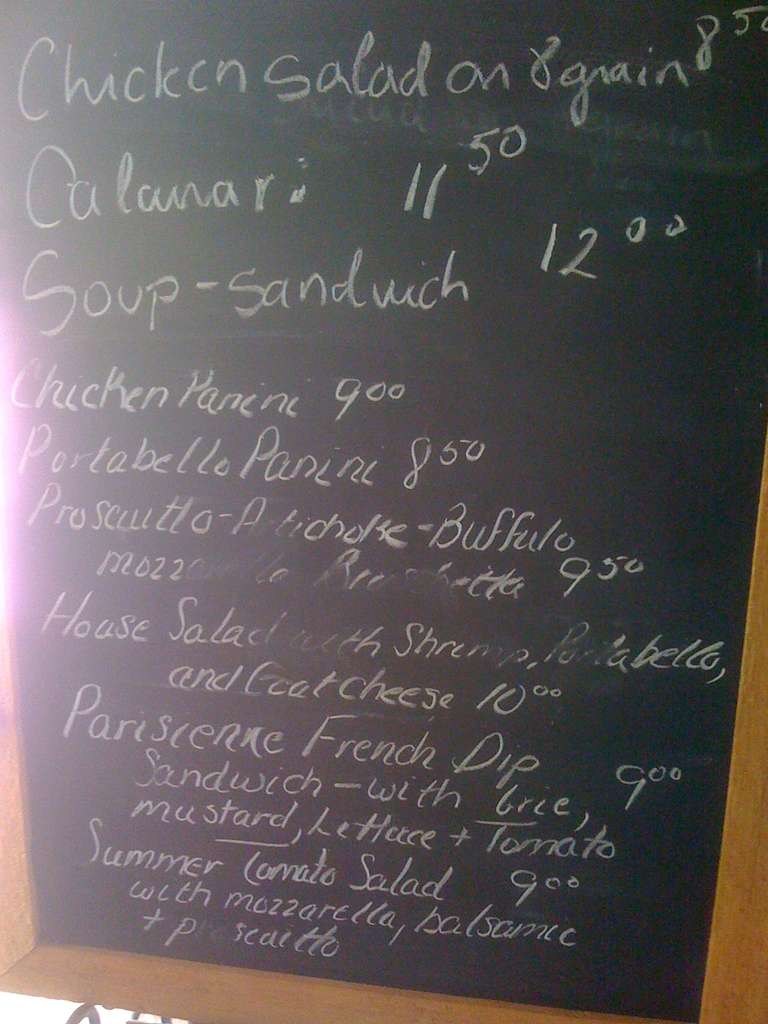 Chicken Salad on 8 grain 8 50
Calamari 11 50
Soup - Sandwich 12 00
Chicken Panini 9 00
Portabello Panini 8 50
Prosciutto - Artichoke - Buffulo
mozzarella Bruschetta 9 50
House Salad with Shrimp, Portabello,
and Goat Cheese 10 00
Parisienne French Dip
Sandwich - with brie, 9 00
mustard, Lettuce + Tomato
Summer tomato Salad 9 00
with mozzarella, balsamic
+ proscuitto